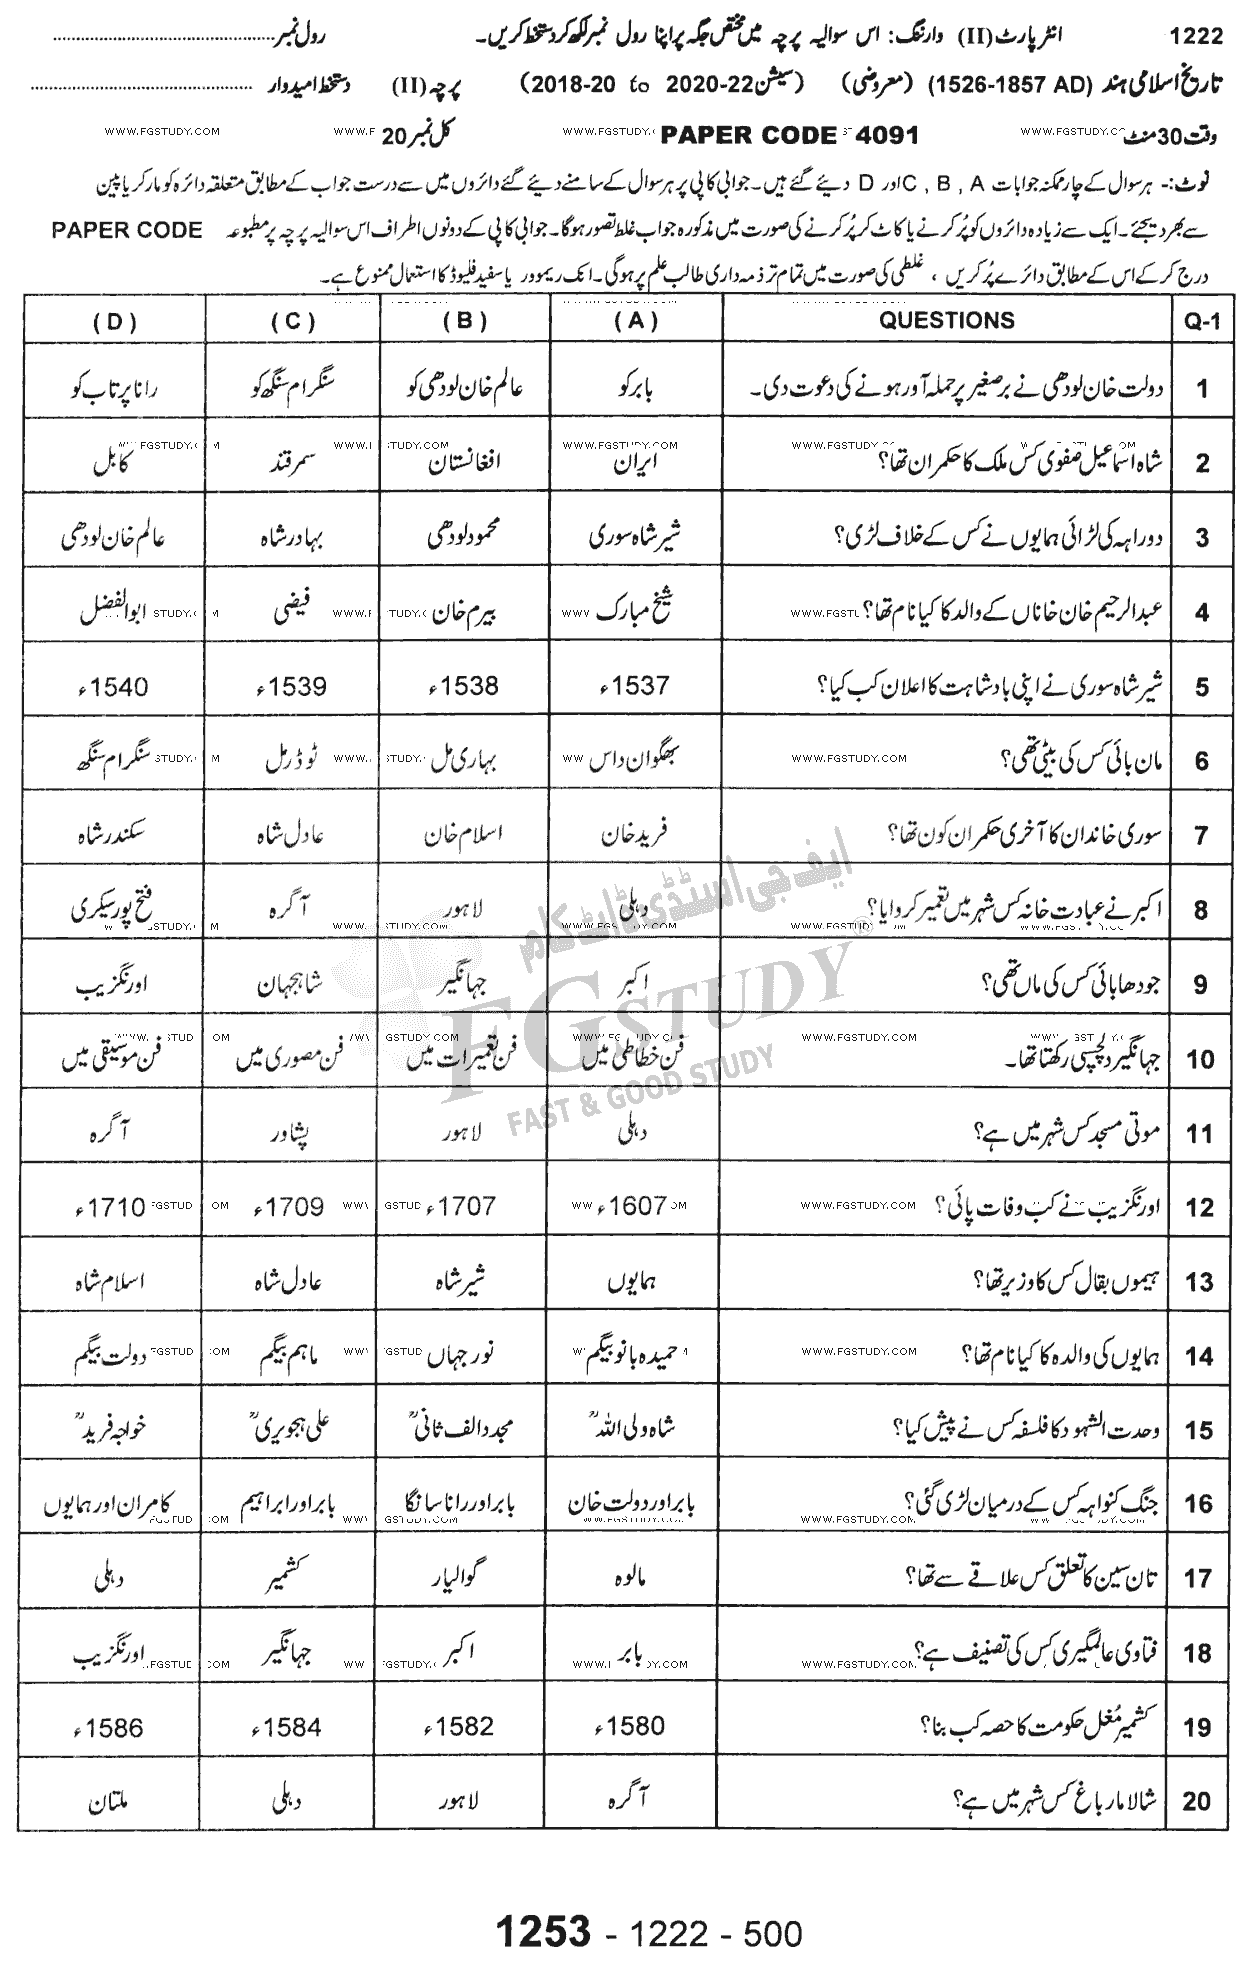 1222 انٹر پارٹ (II) وارننگ: اس سوالیہ پرچہ میں مختص جگہ پر اپنا رول نمبر لکھ کر دستخط کریں۔ رول نمبر
تاریخ اسلامی ہند (1526-1857 AD) (معروضی) (سیشن 2018-20 to 2020-22) پرچہ (II) دستخط امیدوار
وقت 30 منٹ PAPER CODE 4091 کل نمبر 20
نوٹ:- ہر سوال کے چار ممکنہ جوابات C , B , A اور D دیئے گئے ہیں۔ جوابی کاپی پر ہر سوال کے سامنے دیئے گئے دائروں میں سے درست جواب کے مطابق متعلقہ دائرہ کو مارکر یا پین
سے بھر دیجئے۔ ایک سے زیادہ دائروں کو پُر کرنے یا کاٹ کر پُر کرنے کی صورت میں مذکورہ جواب غلط تصور ہوگا۔ جوابی کاپی کے دونوں اطراف اس سوالیہ پرچہ پر مطبوعہ PAPER CODE
درج کر کے اس کے مطابق دائرے پُر کریں ، غلطی کی صورت میں تمام تر ذمہ داری طالب علم پر ہوگی۔ انک ریموور یا سفید فلیوڈ کا استعمال ممنوع ہے۔
Q-1 QUESTIONS (A) (B) (C) (D)
1 دولت خان لودھی نے برصغیر پر حملہ آور ہونے کی دعوت دی۔ بابر کو عالم خان لودھی کو سنگرام سنگھ کو رانا پرتاب کو
2 شاہ اسماعیل صفوی کس ملک کا حکمران تھا؟ ایران افغانستان سمرقند کابل
3 دوراہہ کی لڑائی ہمایوں نے کس کے خلاف لڑی؟ شیر شاہ سوری محمود لودھی بہادر شاہ عالم خان لودھی
4 عبدالرحیم خان خاناں کے والد کا کیا نام تھا؟ شیخ مبارک بیرم خان فیضی ابوالفضل
5 شیر شاہ سوری نے اپنی بادشاہت کا اعلان کب کیا؟ 1537ء 1538ء 1539ء 1540ء
6 مان بائی کس کی بیٹی تھی؟ بھگوان داس بہاری مل ٹوڈرمل سنگرام سنگھ
7 سوری خاندان کا آخری حکمران کون تھا؟ فرید خان اسلام خان عادل شاہ سکندر شاہ
8 اکبر نے عبادت خانہ کس شہر میں تعمیر کروایا؟ دہلی لاہور آگرہ فتح پور سیکری
9 جودھا بائی کس کی ماں تھی؟ اکبر جہانگیر شاہجہان اورنگزیب
10 جہانگیر دلچسپی رکھتا تھا۔ فن خطاطی میں فن تعمیرات میں فن مصوری میں فن موسیقی میں
11 موتی مسجد کس شہر میں ہے؟ دہلی لاہور پشاور آگرہ
12 اورنگزیب نے کب وفات پائی؟ 1607ء 1707ء 1709ء 1710ء
13 ہیموں بقال کس کا وزیر تھا؟ ہمایوں شیر شاہ عادل شاہ اسلام شاہ
14 ہمایوں کی والدہ کا کیا نام تھا؟ حمیدہ بانو بیگم نور جہاں ماہم بیگم دولت بیگم
15 وحدت الشہود کا فلسفہ کس نے پیش کیا؟ شاہ ولی اللہؒ مجدد الف ثانیؒ علی ہجویریؒ خواجہ فریدؒ
16 جنگ کنواہہ کس کے درمیان لڑی گئی؟ بابر اور دولت خان بابر اور رانا سانگا بابر اور ابراہیم کامران اور ہمایوں
17 تان سین کا تعلق کس علاقے سے تھا؟ مالوہ گوالیار کشمیر دہلی
18 فتاوی عالمگیری کس کی تصنیف ہے؟ بابر اکبر جہانگیر اورنگزیب
19 کشمیر مُغل حکومت کا حصہ کب بنا؟ 1580ء 1582ء 1584ء 1586ء
20 شالامار باغ کس شہر میں ہے؟ آگرہ لاہور دہلی ملتان
ایف جی اسٹڈی ڈاٹ کام
FGSTUDY®
FAST & GOOD STUDY
WWW.FGSTUDY.COM
1253 - 1222 - 500